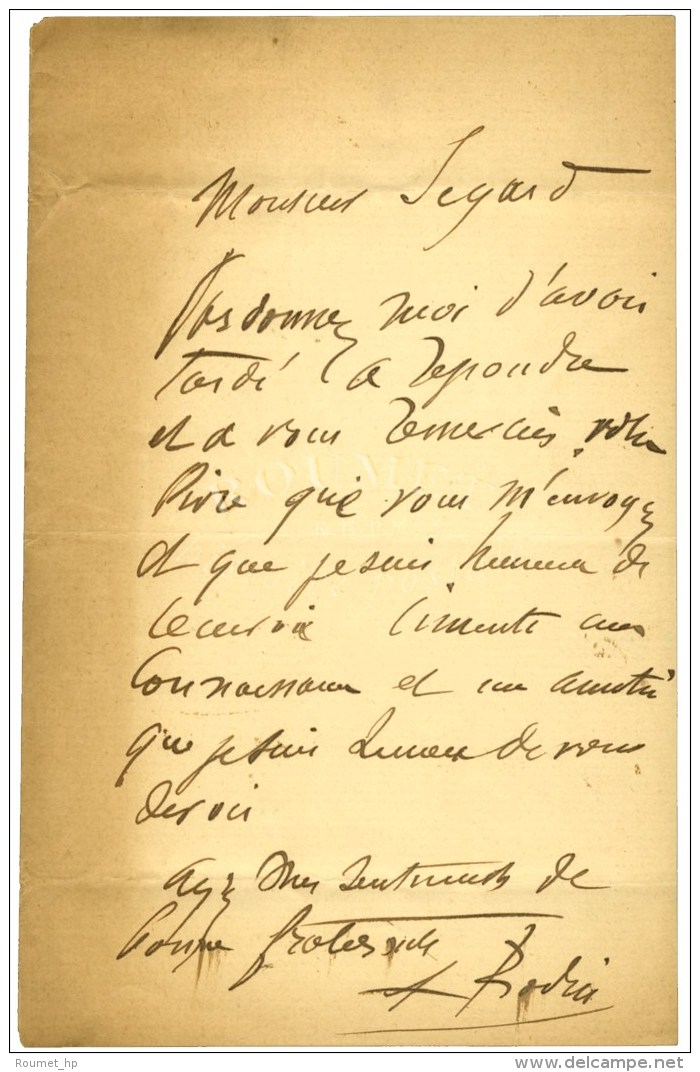 Monsieur Segard
Pardonnez moi d'avoir
tardé a repondre
et a vous remercier, votre
livre que vous m'envoyez
et que je suis heureux de
recevoir cimente une
Connaissance et une amitié
que je suis heureux de vous
devoir
ayez mes sentiments de
bonne fraternité
A Rodin
Roumet_hp
www.delcampe.net